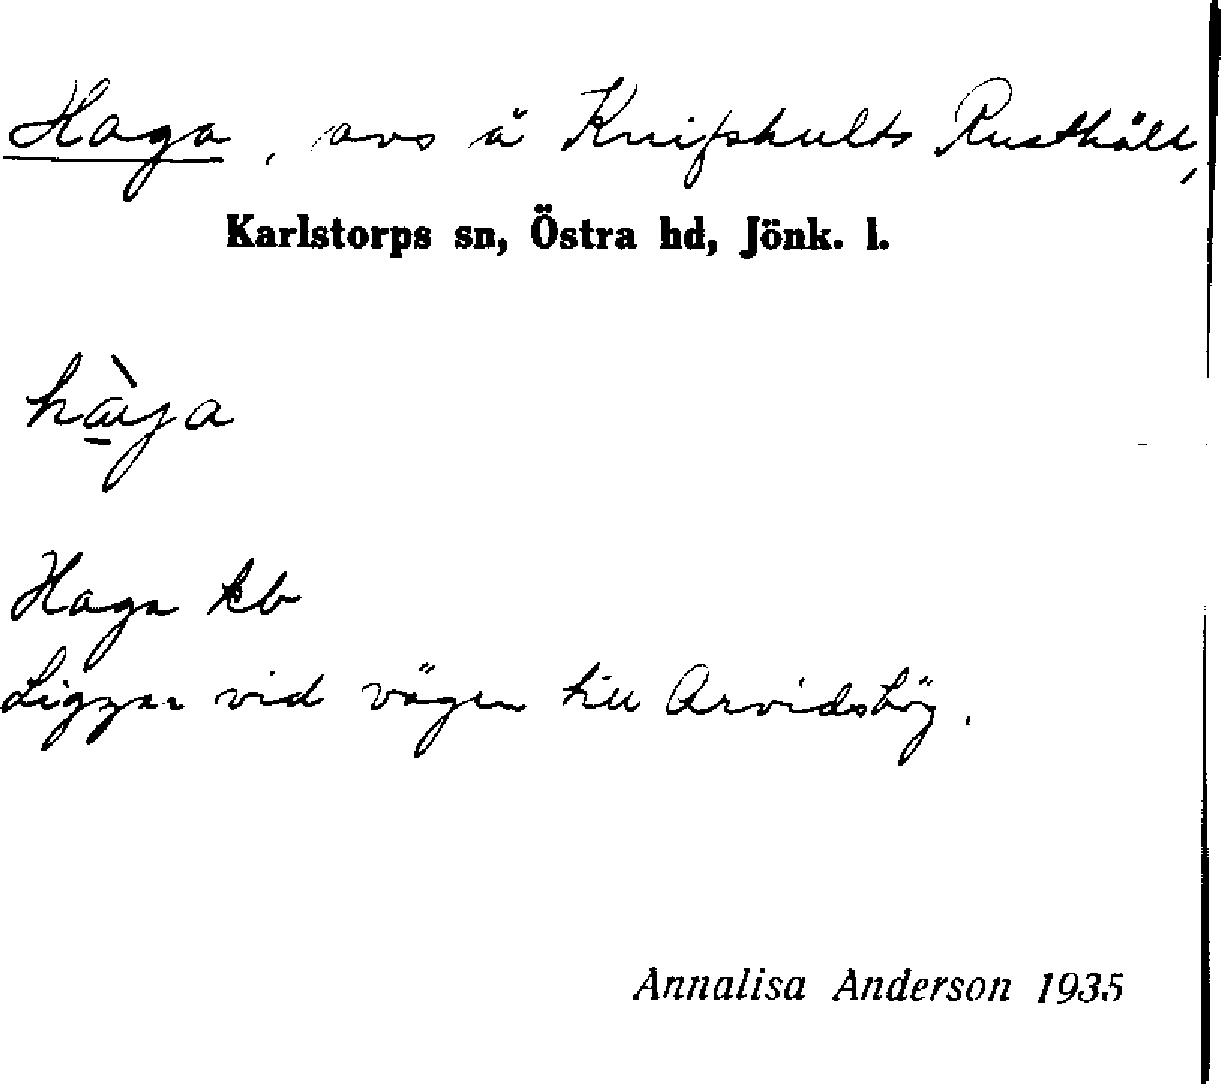 Haga, avs å Knifshults Rusthåll,
Karlstorps sn, Östra hd, Jönk. l.
Haga kb
Ligger vid vägen till Arvidshög.
Annalisa Anderson 1935